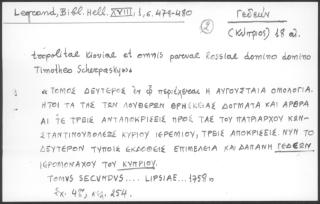 Legrand, Bibl. Hell. XVIII, 1, σ. 479-480
Γεδεών
(Κύπριος) 18 αι.
2
tropolitae Kioviae et omnis parvae Rossiae domino domino
Timotheo Scherpasky»»
« ΤΟΜΟΣ ΔΕΥΤΕΡΟΣ ἐν ᾧ περιέχεται Η ΑΥΓΟΥΣΤΑΙΑ ΟΜΟΛΟΓΙΑ.
ΗΤΟΙ ΤΑ ΤΑΣ ΤΩΝ ΛΟΥΘΕΡΩΝ ΘΡΗΣΚΕΙΑΣ ΔΟΓΜΑΤΑ ΚΑΙ ΑΡΘΡΑ
ΑΙ ΤΕ ΤΡΕΙΣ ΑΝΤΑΠΟΚΡΙΣΕΙΣ ΠΡΟΣ ΤΑΣ ΤΟΥ ΠΑΤΡΙΑΡΧΟΥ ΚΩΝ-
ΣΤΑΝΤΙΝΟΥΠΟΛΕΩΣ ΚΥΡΙΟΥ ΙΕΡΕΜΙΟΥ, ΤΡΕΙΣ ΑΠΟΚΡΙΣΕΙΣ. ΝΥΝ ΤΟ
ΔΕΥΤΕΡΟΝ ΤΥΠΟΙΣ ΕΚΔΟΘΕΙΣ ΕΠΙΜΕΛΕΙΑ ΚΑΙ ΔΑΠΑΝΗ ΓΕΔΕΩΝ
ΙΕΡΟΜΟΝΑΧΟΥ ΤΟΥ ΚΥΠΡΙΟΥ.
TOMUS SECUNDUS.... LIPSIAE... 1758»
Σχ. 4ον, σελ. 254.